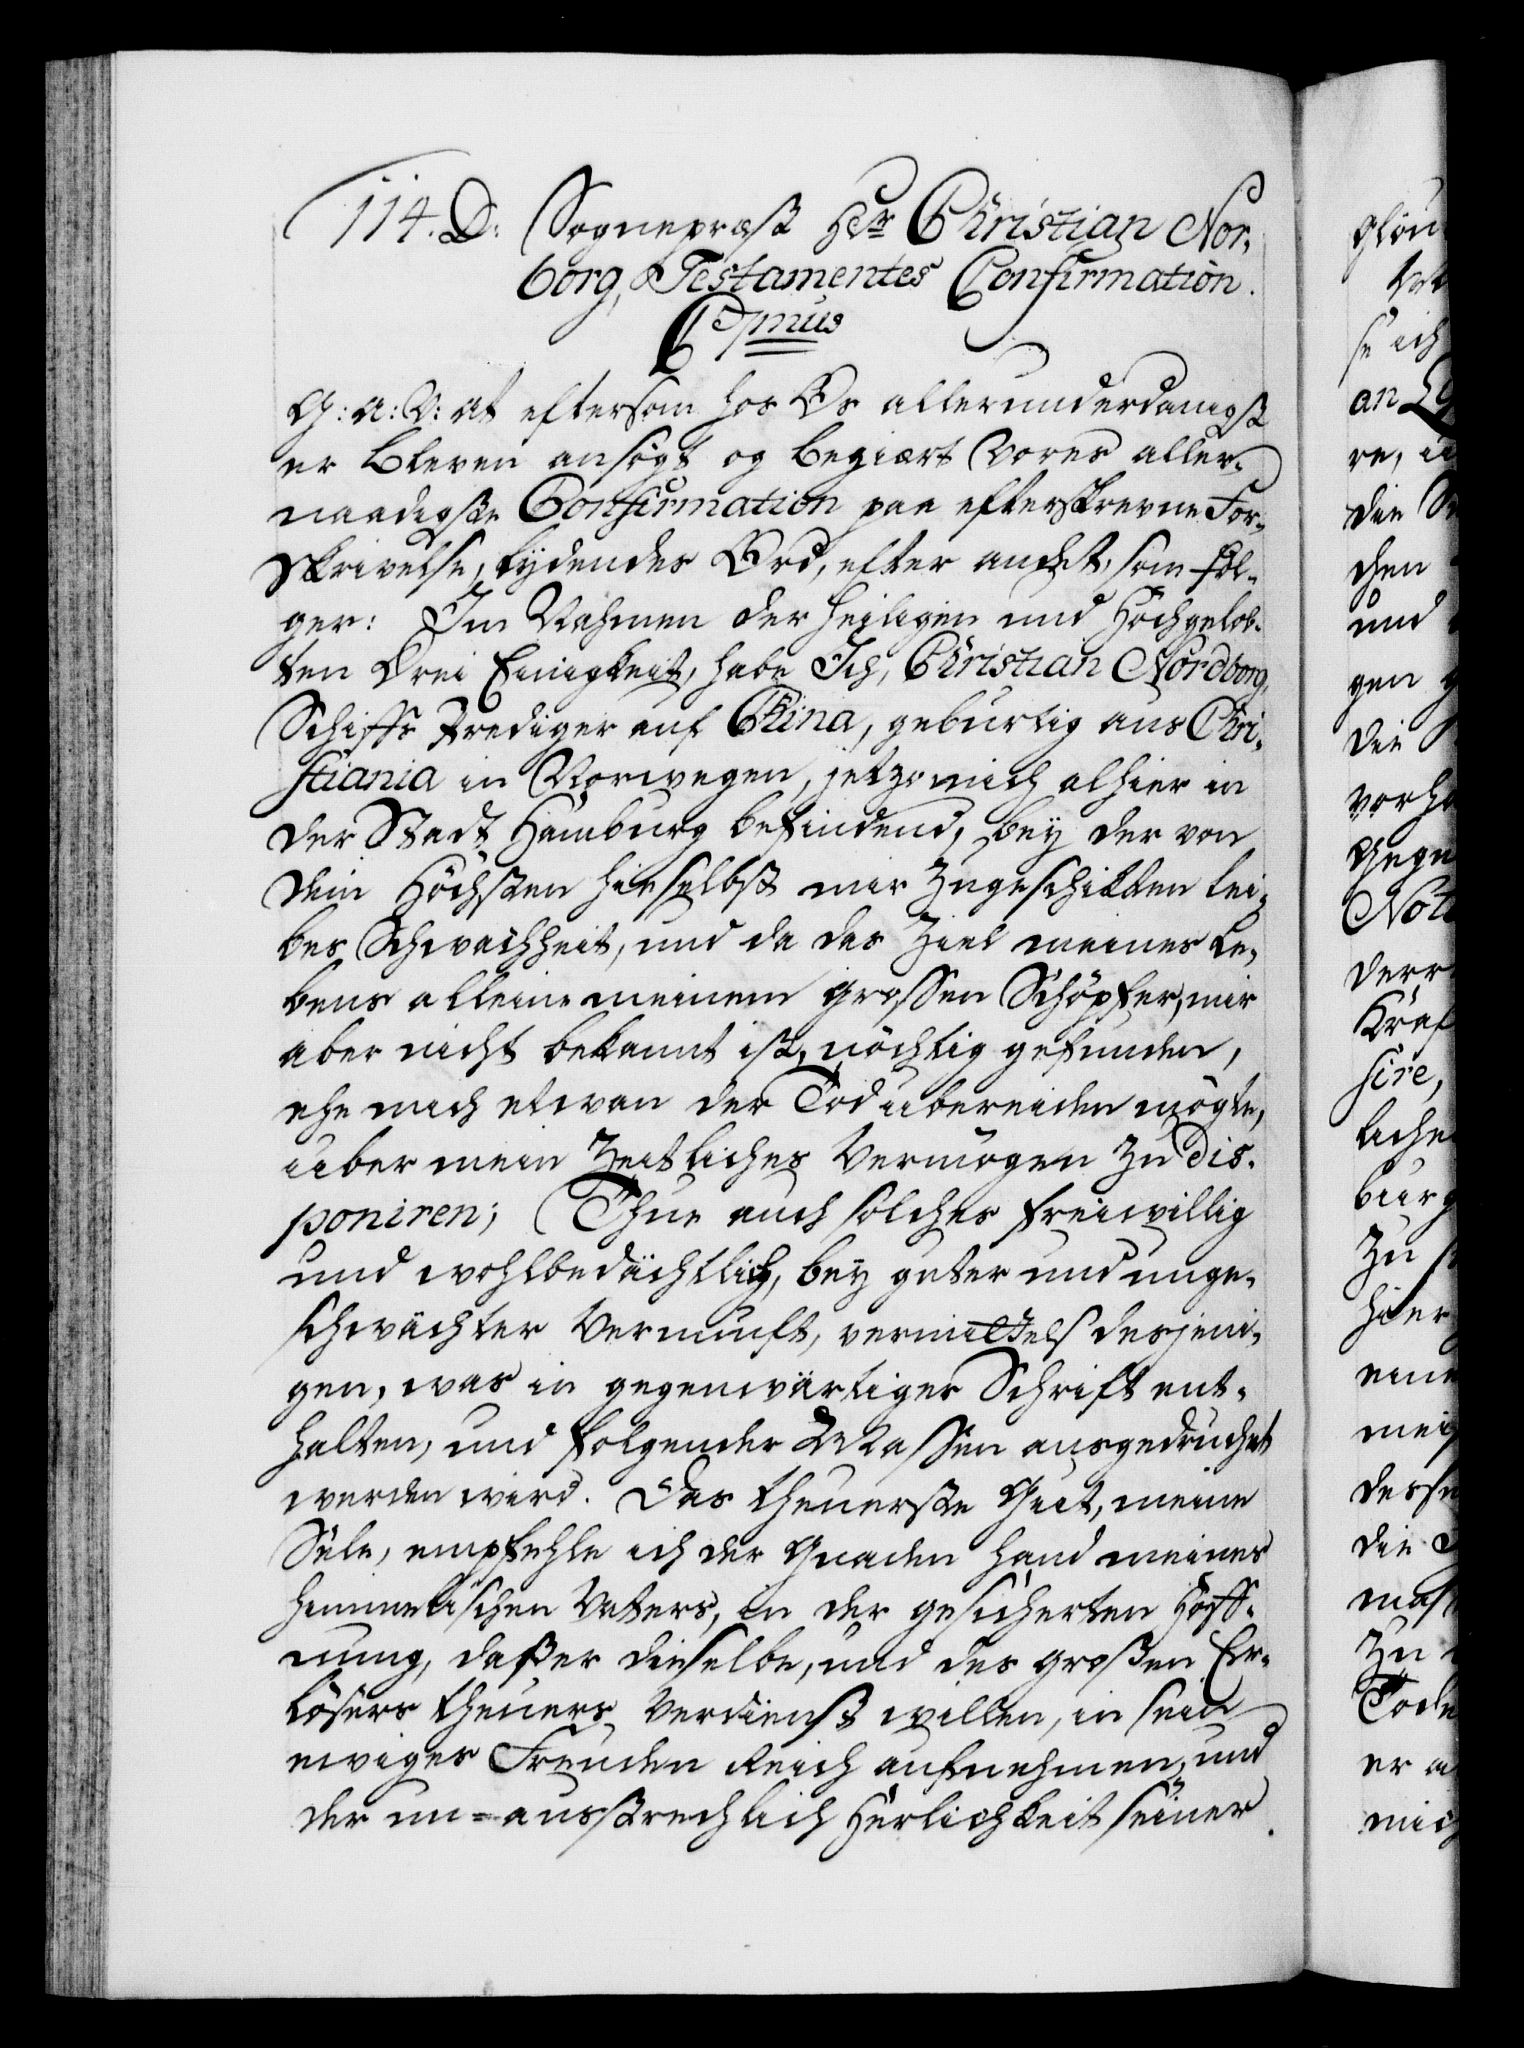 114. D. Sognepræst Hr. Christian Nor-
borg, Testamentes Confirmation.
G: A: V: at eftersom hos Os allerunderdanigst
er bleven ansögt og begiært Vores aller-
naadigste Confirmation paa efterskrevne For-
skrivelse, lydendes Ord, efter andet, som föl-
ger: Im Nahmen der heiligen und Höchgelob-
ten Drei Einigkeit, habe Ich, Christian Nordborg,
Schiffs Prediger auf China, geburtig aus Chri-
stiania in Norwegen, jetzo mich alhier in
der Stadt Hamburg befindend, bey der von
dem Höchsten hieselbst mir zugeschikten lei-
bes Schwachheit, und da das Ziel meines Le-
bens alleine meinem grossen Schöpfer, mir
aber nicht bekannt ist, nöchtig gefunden,
ehe mich etwan der Tod übereiden mögte,
über mein Zeitliches Vermögen zu dis-
poniren; Thue auch solches freiwillig
und wohlbedächtlich, bey guter und unge-
schwächter Vernunft, vermittels desjeni-
gen, was in gegenwärtiger Schrift ent-
halten, und folgender Massen ausgedruchet
werden wird. Das theuerste Gut, meine
Sele, empfehle ich der Gnaden Hand meines
himmelischen Vaters, in der gesicherten Hoff-
nung, daß er dieselbe, und des großen Er-
lösers theuers Verdienst willen, in sein
ewiges Freuden Reich aufnehmen, und
der un=aussprechlich Herlichkeit seiner